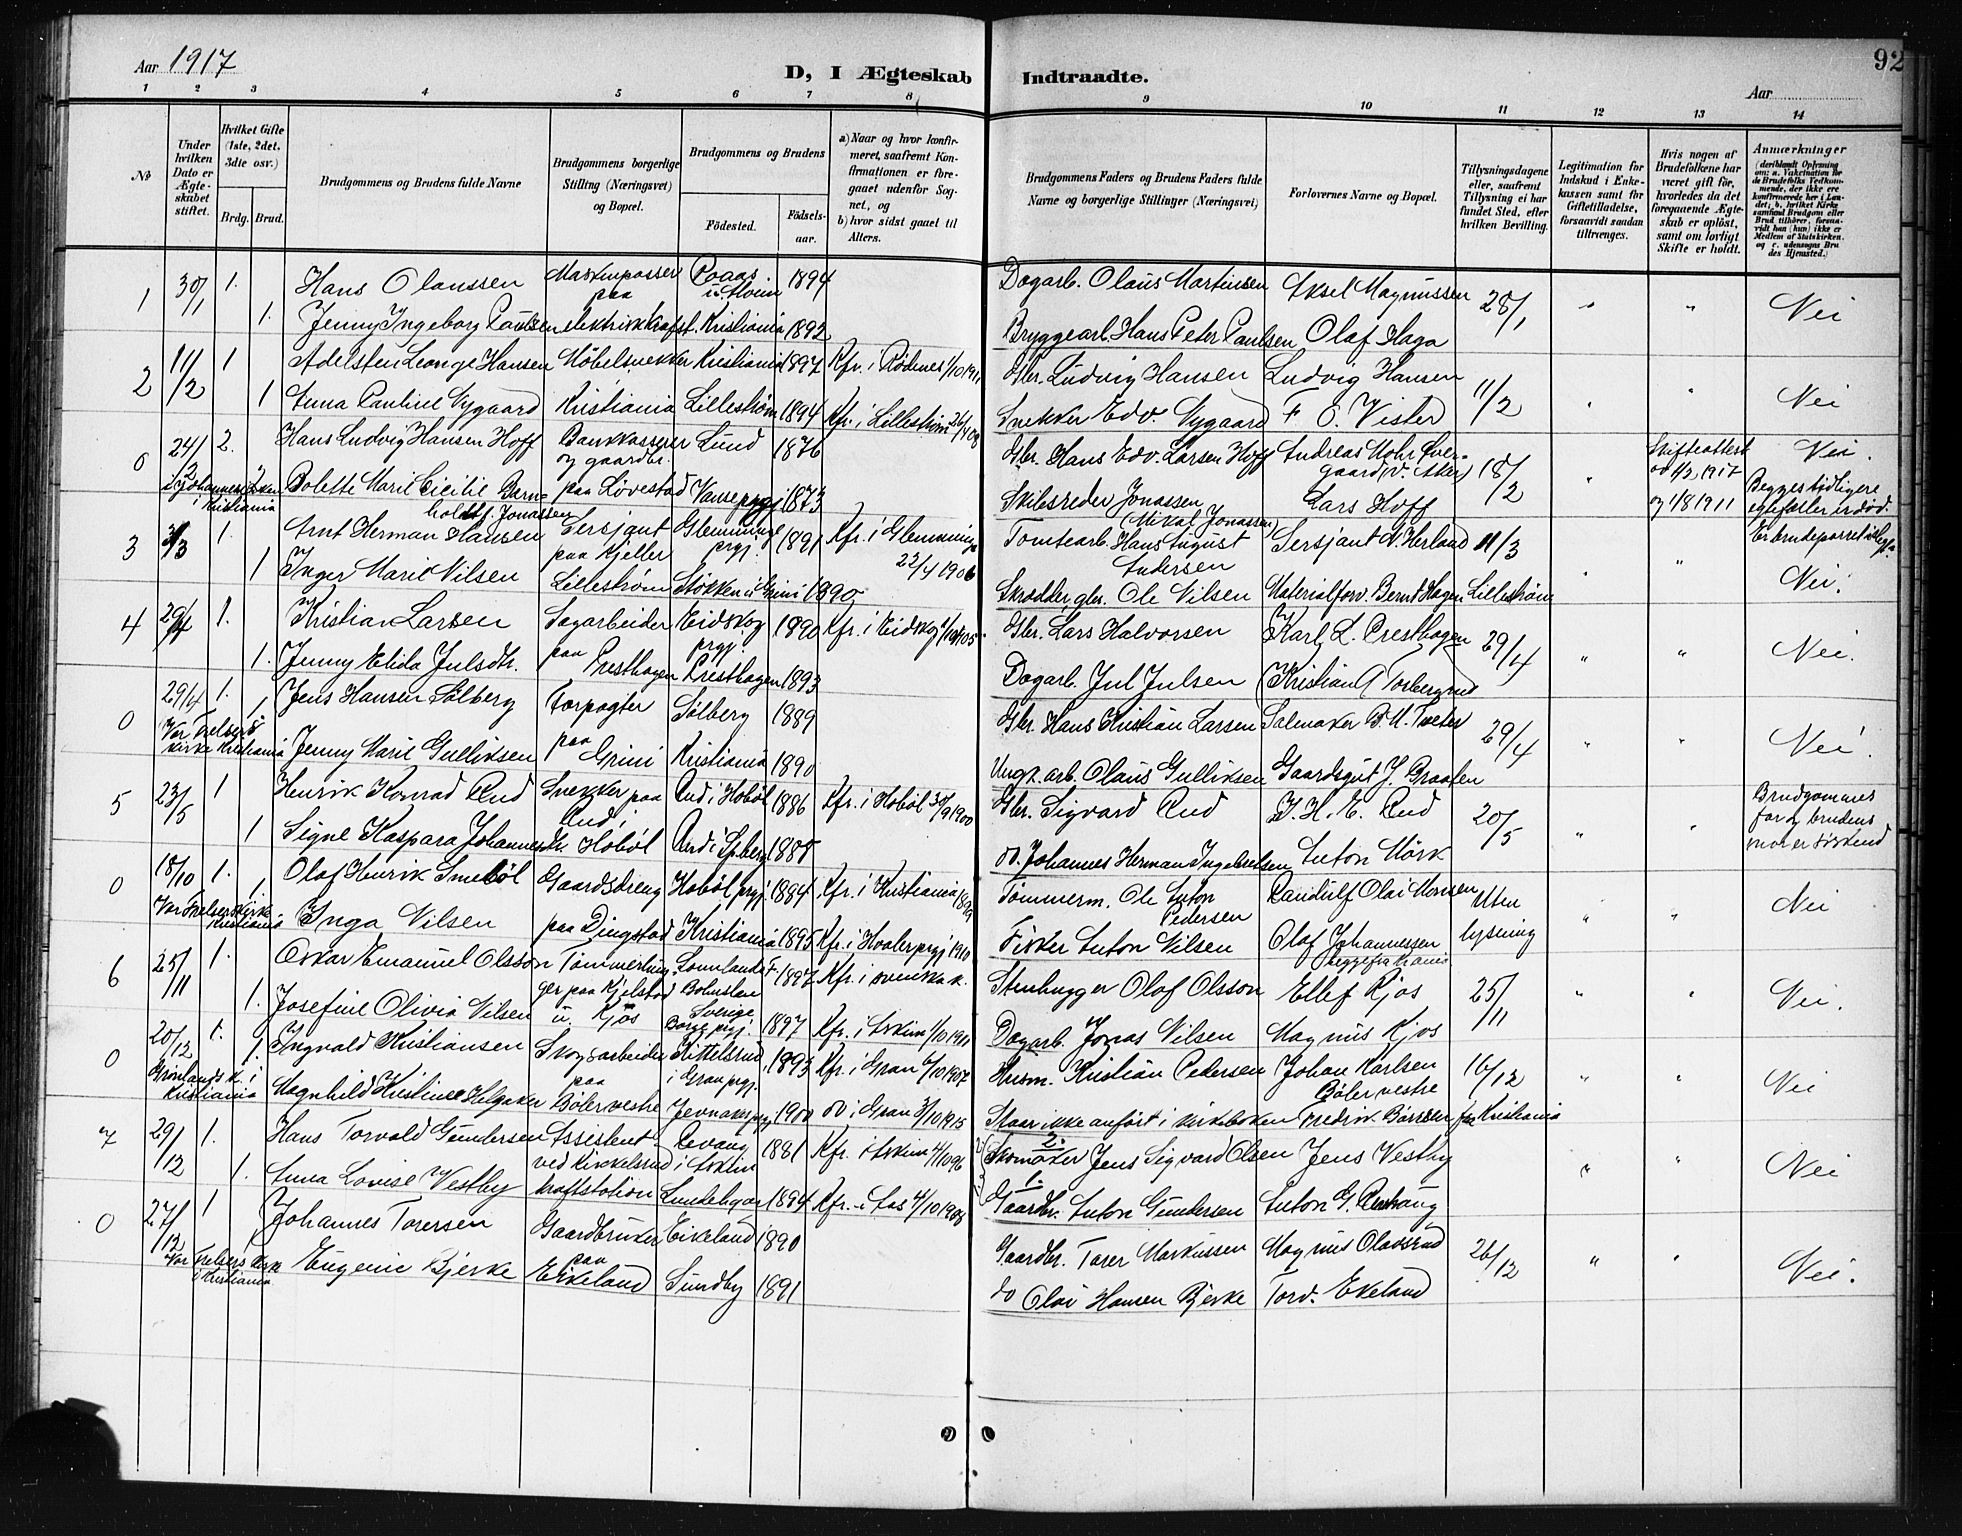 Aar 1917
D, I Ægteskab Indtraadte.
Aar
92
1 2 3 4 5 6 7 8 9 10 11 12 13 14
No
Under hvilken Dato er Ægteskabet stiftet.
Hvilket Gifte (1ste, 2det, 3die osv.)
Brdg. Brud.
Brudgommens og Brudens fulde Navne
Brudgommens borgerlige Stilling (Næringsvei) og Bopæl.
Brudgommens og Brudens
Fødested.
Fødselsaar.
a) Naar og hvor konfirmeret, saafremt Konfirmationen er foregaaet udenfor Sognet, og
b) hvor sidst gaaet til Alters.
Brudgommens Faders og Brudens Faders fulde Navne og borgerlige Stillinger (Næringsvei)
Forlovernes Navne og Bopæl.
Tillysningsdagene eller, saafremt Tillysning ei har fundet Sted, efter hvilken Bevilling.
Legitimation for Indskud i Enkekassen samt for Giftetilladelse, forsaavidt saadan tiltrænges.
Hvis nogen af Brudefolkene har været gift før, hvorledes da det foregaaende Ægteskab er opløst, samt om lovligt Skifte er holdt.
Anmærkninger
1 30/1 1. Hans Olaussen Maskinpasser paa 1894 Dagarb. Olaus Martinsen Aksel Magnussen 28/1 " " Nei
1. Jenny Ingeborg Paulsen elektrisk kraftst. Kristiania 1892 Bryggearb. Hans Peter Paulsen Olaf Haga
2 11/2 1 Adelsten Leonge Hansen Møbelsnekker Kristiania 1897 Kfr. i Rødenes 1/10 1911 Gbr. Ludvig Hansen Ludvig Hansen 11/2 " " Nei
1 Anna Pauline Nygaard Kristiania Lillestrøm 1894 Kfr. i Lillestrøm 26/4 08 Snekker Edv. Nygaard F. O. Vister
0 24/2 2. Hans Ludvig Hansen Hoff Bankkasserer og gaardbr. Lund 1876 Gbr. Hans Edv. Larsen Hoff Andreas Mohr Overgaard (v. Aker) 18/2 " Skifteattest Nei.
i Johanneskirken i Kristiania 2 Bolette Marie Cicilie Barnholdt f. Jonassen paa Løvestad Vanse prgj. 1873 Skibsreder Jonassen (Mikal Jonassen) Lars Hoff og 1/8 1911 Begges tidligere egtefæller er død.
3 3/3 1. Arnt Herman Hansen Sersjant paa Kjeller Glemminge prgj. 1891 Kfr. i Glemminge 22/4 1906 Tomtearb. Hans August Andersen Sersjant N. Herland 11/3 " " Er brudeparret
1 Inger Marie Nilsen Lillestrøm Stokken i Grini 1890 Skrædder, gbr. Ole Nilsen Materialforv. Bernt Hagen Lillestrøm Nei.
4 29/4 1. Kristian Larsen Sagarbeider paa Eidskog prgj. 1890 Kfr. i Eidskog 1/10 1905 Gbr. Lars Halvorsen Karl L. Presthagen 29/4 " " Nei.
1. Jenny Elida Julsdtr. Presthagen Presthagen 1893 Dagarb. Jul Julsen Kristian A Torbergrud
0 29/4 1. Jens Hansen Solberg Forpagter Solberg 1889 Gbr. Hans Kristian Larsen Salmaker B. M. Tveter 29/4 " " Nei.
Vor Frelsers kirke Kristiania 1 Jenny Marie Gulliksen paa Grini Kristiania 1890 Olaus Gulliksen Gaardsgut J. Braaten
5 23/5 1 Henrik Konrad Rud Snekker paa Rud i Hobøl 1886 Kfr. i Hobøl 30/9 1900 Gbr. Sigvard Rud H. E. Rud 20/5 " " Brudgommens far og brudens mor er søskend
1 Signe Kaspara Johannesdtr. Rud i Hobøl Rud i Spberg 1888 Johannes Herman Ingebretsen Anton Mørk
0 18/10 1. Olaf Henrik Smebøl Gaardsdreng Hobøl prgj. 1884 Kfr. i Kristiania 1899 Tømmerm. Ole Anton Pedersen Randulf Olai Monsen Uten " " Nei
Vor Frelsers Kirke Kristiania 1. Inga Nilsen paa Dingstad Kristiania 1895 Kfr. i Hvaler prgj. 1910 Fisker Anton Nilsen Olaf Johannessen begge fra Krania lysning
6 25/11 1. Oskar Emanuel Olsson Tømmerhugger paa Kjelstad Bohuslen Sverige 1897 Kfr. i svenska k. Stenhugger Olof Olsson Ellef Kjos 25/11 " " Nei.
1. Josefine Olivia Nilsen u. Kjos Borge prgj. 1897 Kfr. i Askim 1/10 1911 Dagarb. Jonas Nilsen Magnus Kjos
0 20/12 1. Ingvald Kristiansen Skogsarbeider paa Kittelsrud i Gran prgj. 1893 Kfr. i Gran 6/10 1907 Husm. Kristian Pedersen Johan Karlsen Bøler vestre 16/12 " " Nei
Grønlands k. i Kristiania 1. Magnhild Kristine Helgaker Bøler vestre Jevnaker prgj. 1900 do i Gran 3/10 1915 Staar ikke anført i kirkeboken Fredrik Børresen fra Kristiania
7 29/12 1. Hans Torvald Gundersen Assistent Revaug i Askim 1881 Kfr. i Askim 4/10 96 2. Skomaker Jens Sigvard Olsen Jens Vestby " " Nei
1. Anna Lovise Vestby ved Kykkelsrud kraftstation 1894 Kfr. i Aas 4/10 1908 1. Gaardbr. Anton Gundersen Anton G. Revhaug
0 27/12 1 Johannes Toresen Gaardbruker paa Eikeland 1890 Gaardbr. Torer Markussen Magnus Olavsrud 26/12 " " Nei.
Vor Frelsers Kirke i Kristiania 1 Eugenie Bjerke Eikeland Sundby 1891 do Olai Hansen Bjerke Torv. Ekeland